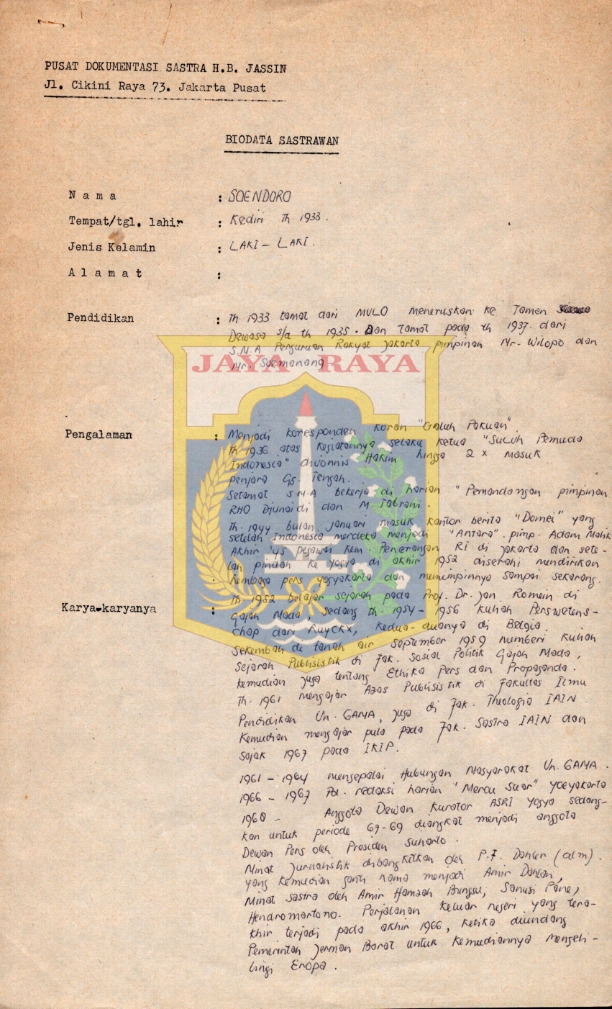 PUSAT DOKUMENTASI SASTRA H.B. JASSIN
Jl. Cikini Raya 73. Jakarta Pusat
BIODATA SASTRAWAN
N a m a : SOENDORO
Tempat/tgl. lahir : Kediri Th 1933.
Jenis Kelamin : LAKI - LAKI.
A l a m a t :
Pendidikan : Th 1933 tamat dari MULO meneruskan ke Taman
Dewasa s/d th 1935. Dan tamat pada th 1937 dari
S.M.A Perguruan Rakyat Jakarta pimpinan Mr. Wilopo dan
Mr. Soemanang
JAYA RAYA
Pengalaman : Menjadi koresponden koran "Pakuan".
Th 1936 atas kegiatannya selaku ketua "Suluh Pemuda
Indonesia" divonnis Hakim hingga 2 x masuk
penjara Gs Tengah.
Setamat SMA bekerja di harian "Pemandangan pimpinan
RHO Djunaidi dan M Tabrani.
Th. 1944 bulan Januari masuk kantor berita "Domei" yang
setelah Indonesia merdeka menjadi "Antara". pimp. Adam Malik
Akhir '45 Pegawai Kem Penerangan RI di Jakarta dan sete-
lah pindah ke Yogya di akhir 1952 diserahi mendirikan
Lembaga pers Yogyakarta dan memimpinnya sampai sekarang.
Karya-karyanya : Th 1952 belajar sejarah pada Prof. Dr. Jan Romein di
Gajah Mada, sedang th 1954 - 1956 kuliah Perswetens-
chap dari Kuyckx, kedua-duanya di Belgia
Sekembali di tanah air September 1959 memberi kuliah
Sejarah Publisistik di Fak. Sosial Politik Gajah Mada,
kemudian juga tentang Ethika Pers dan Propaganda.
Th. 1961 mengajar Azas Publisistik di Fakultas Ilmu
Pendidikan Un. GAMA, juga di Fak. Theologia IAIN
Kemudian mengajar pula pada Fak. Sastra IAIN dan
Sejak 1967 pada IKIP.
1961 - 1964 mengepalai Hubungan Masyarakat Un. GAMA.
1966 - 1967 Pd. redaksi harian "Mercu Suar" yogyakarta
1968 - Anggota Dewan Kurator ASRI Yogya sedang-
kan untuk periode 67-69 diangkat menjadi anggota
Dewan Pers oleh Presiden Suharto.
Minat Jurnalistik dibangkitkan oleh P.F. Dahler (alm).
yang kemudian ganti nama menjadi Amir Dahler,
Minat sastra oleh Amir Hamzah Bungsu, Sanusi Pane,
Hendromartono. Perjalanan keluar negeri yang tera-
khir terjadi pada akhir 1966, ketika diundang
Pemerintah Jerman Barat untuk kemudiannya mengeli-
lingi Eropa.